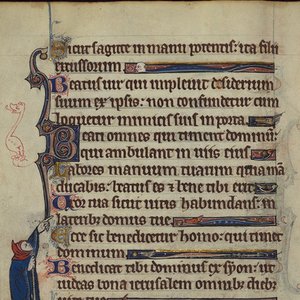 Sicut sagitte in manu potentis: ita filii
excussorum
Beatus vir qui implevit desiderium
suum ex ipsis: non confundetur cum
loquetur inimicis suis in porta
Beati omnes qui timent dominum:
qui ambulant in viis eius
Labores manuum tuarum quia man
ducabis: beatus es et bene tibi erit
Uxor tua sicut vitis habundans: in
lateribus domus tue
Ecce sic benedicetur homo: qui timet
dominum
Benedicat tibi dominus ex syon: ut
videas bona ierusalem omnibus dieb